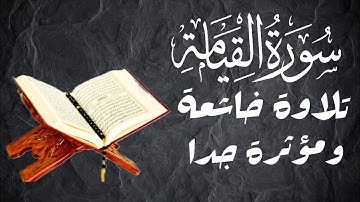 سُورَةُ القِيَامَةِ
تلاوة خاشعة
ومؤثرة جدا